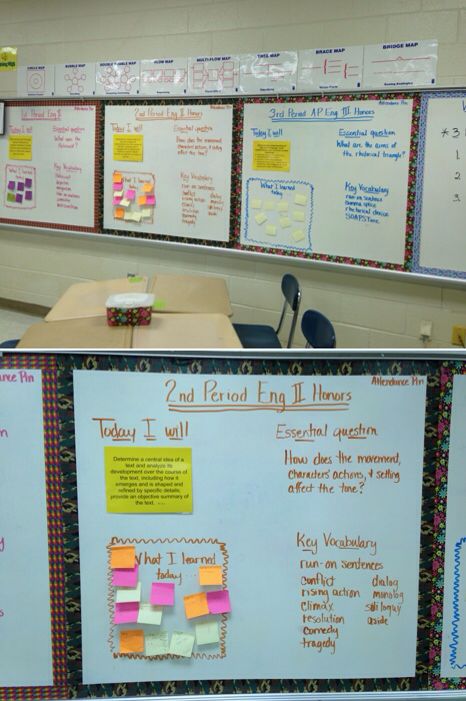 CIRCLE MAP
BUBBLE MAP
DOUBLE BUBBLE MAP
FLOW MAP
MULTI-FLOW MAP
TREE MAP
BRACE MAP
BRIDGE MAP
1st Period Eng II
Attendance Pin
Today I will
Essential question
Key Vocabulary
2nd Period Eng II Honors
Attendance Pin
Today I will
Essential question
How does the movement,
characters' actions, & setting
affect the tone?
What I learned
today
Key Vocabulary
run-on sentences
conflict
rising action
climax
resolution
comedy
tragedy
3rd Period AP Eng III Honors
Attendance Pin
Today I will
Essential question
What are the arms of
the rhetorical triangle?
What I learned
today
Key Vocabulary
run-on sentences
comma splice
rhetorical device
SOAPSTone
* 3
1
2
3.
2nd Period Eng II Honors
Attendance Pin
Today I will
Essential question
Determine a central idea of a
text and analyze its
development over the course of
the text, including how it
emerges and is shaped and
refined by specific details;
provide an objective summary of
the text.
How does the movement,
characters' actions, & setting
affect the tone?
What I learned
today...
Key Vocabulary
run-on sentences
conflict dialog
rising action monolog
climax soliloquy
resolution aside
comedy
tragedy